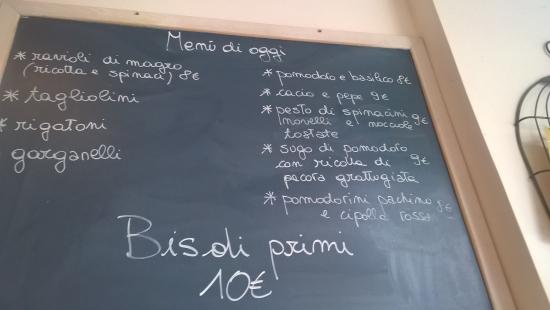 Menù di oggi
* ravioli di magro
(ricotta e spinaci) 8€
* tagliolini
* rigatoni
garganelli
* pomodoro e basilico 8€
* cacio e pepe 9€
* pesto di spinacini 9€
novelli e nocciole
tostate
* sugo di pomodoro
con ricotta di 9€
pecora grattugiata
* pomodorini pachino 8€
e cipolla rossa
Bis di primi
10€